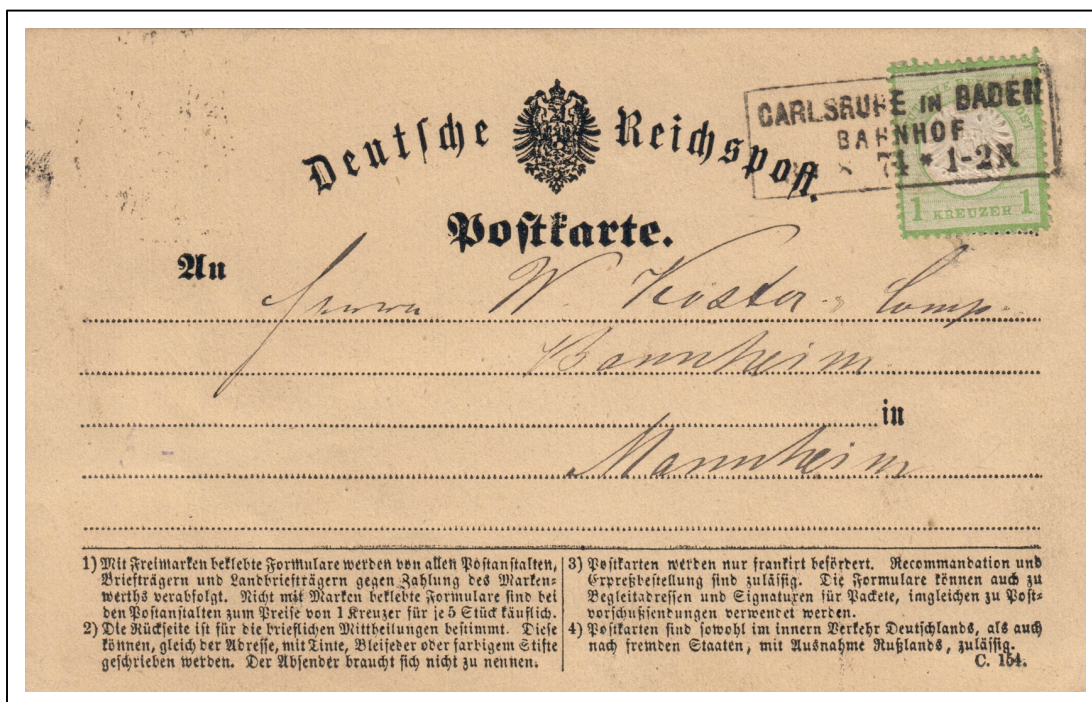 Deutsche Reichspost.
CARLSRUHE IN BADEN
BAHNHOF
8 74 * 1-2N
1 KREUZER 1
Postkarte.
An
Herrn W. Köster & Comp.
Bannheim
in
Mannheim
1) Mit Freimarken beklebte Formulare werden von allen Postanstalten,
Briefträgern und Landbriefträgern gegen Zahlung des Marken-
werths verabfolgt. Nicht mit Marken beklebte Formulare sind bei
den Postanstalten zum Preise von 1 Kreuzer für je 5 Stück käuflich.
2) Die Rückseite ist für die brieflichen Mittheilungen bestimmt. Diese
können, gleich der Adresse, mit Tinte, Bleifeder oder farbigem Stifte
geschrieben werden. Der Absender braucht sich nicht zu nennen.
3) Postkarten werden nur frankirt befördert. Recommandation und
Expreßbestellung sind zulässig. Die Formulare können auch zu
Begleitadressen und Signaturen für Packete, imgleichen zu Post-
vorschußsendungen verwendet werden.
4) Postkarten sind sowohl im innern Verkehr Deutschlands, als auch
nach fremden Staaten, mit Ausnahme Rußlands, zulässig.
C. 154.